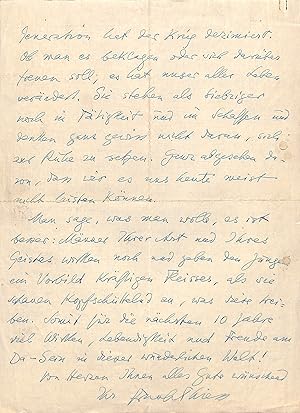 Generation hat der Krieg dezimiert.
Ob man es beklagen oder sich darüber
freuen soll; es hat unser aller Leben
verändert. Sie stehen als Siebziger
noch in Tätigkeit und im Schaffen und
denken ganz gewiss nicht daran, sich
zur Ruhe zu setzen. Ganz abgesehen da-
von, dass wir es uns heute meist
nicht leisten können.
Man sage, was man wolle, es ist
besser: Männer Ihrer Art und Ihres
Geistes wirken noch und geben den Jungen
ein Vorbild kräftigen Fleisses, als sie
schauen kopfschüttelnd an, was jene trei-
ben. Somit für die nächsten 10 Jahre
viel Wirken, Lebendigkeit und Freude am
Da-Sein in dieser wunderlichen Welt!
Von Herzen Ihnen alles Gute wünschend
Ihr Frank Thiess